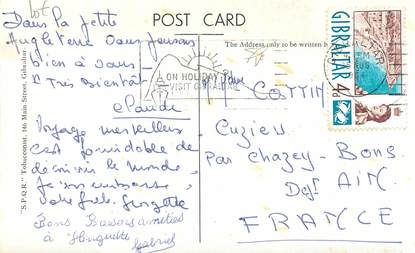 POST CARD
The Address only to be written
"S.P.Q.R." Tobacconist, 146 Main Street, Gibraltar.
Dans la petite
Angleterre nous pensons
bien à vous
Très Bientôt
Claude
Voyage merveilleux
c'est formidable de
le monde
Je vous embrasse
votre Georgette
Bons Baisers amitiés
à Huguette
Gabriel
ON HOLIDAY
VISIT GIBRALTAR
GIBRALTAR
4d
Mme COTTIN
Cuzieu
Par Chazey-Bons
Dept AIN
FRANCE